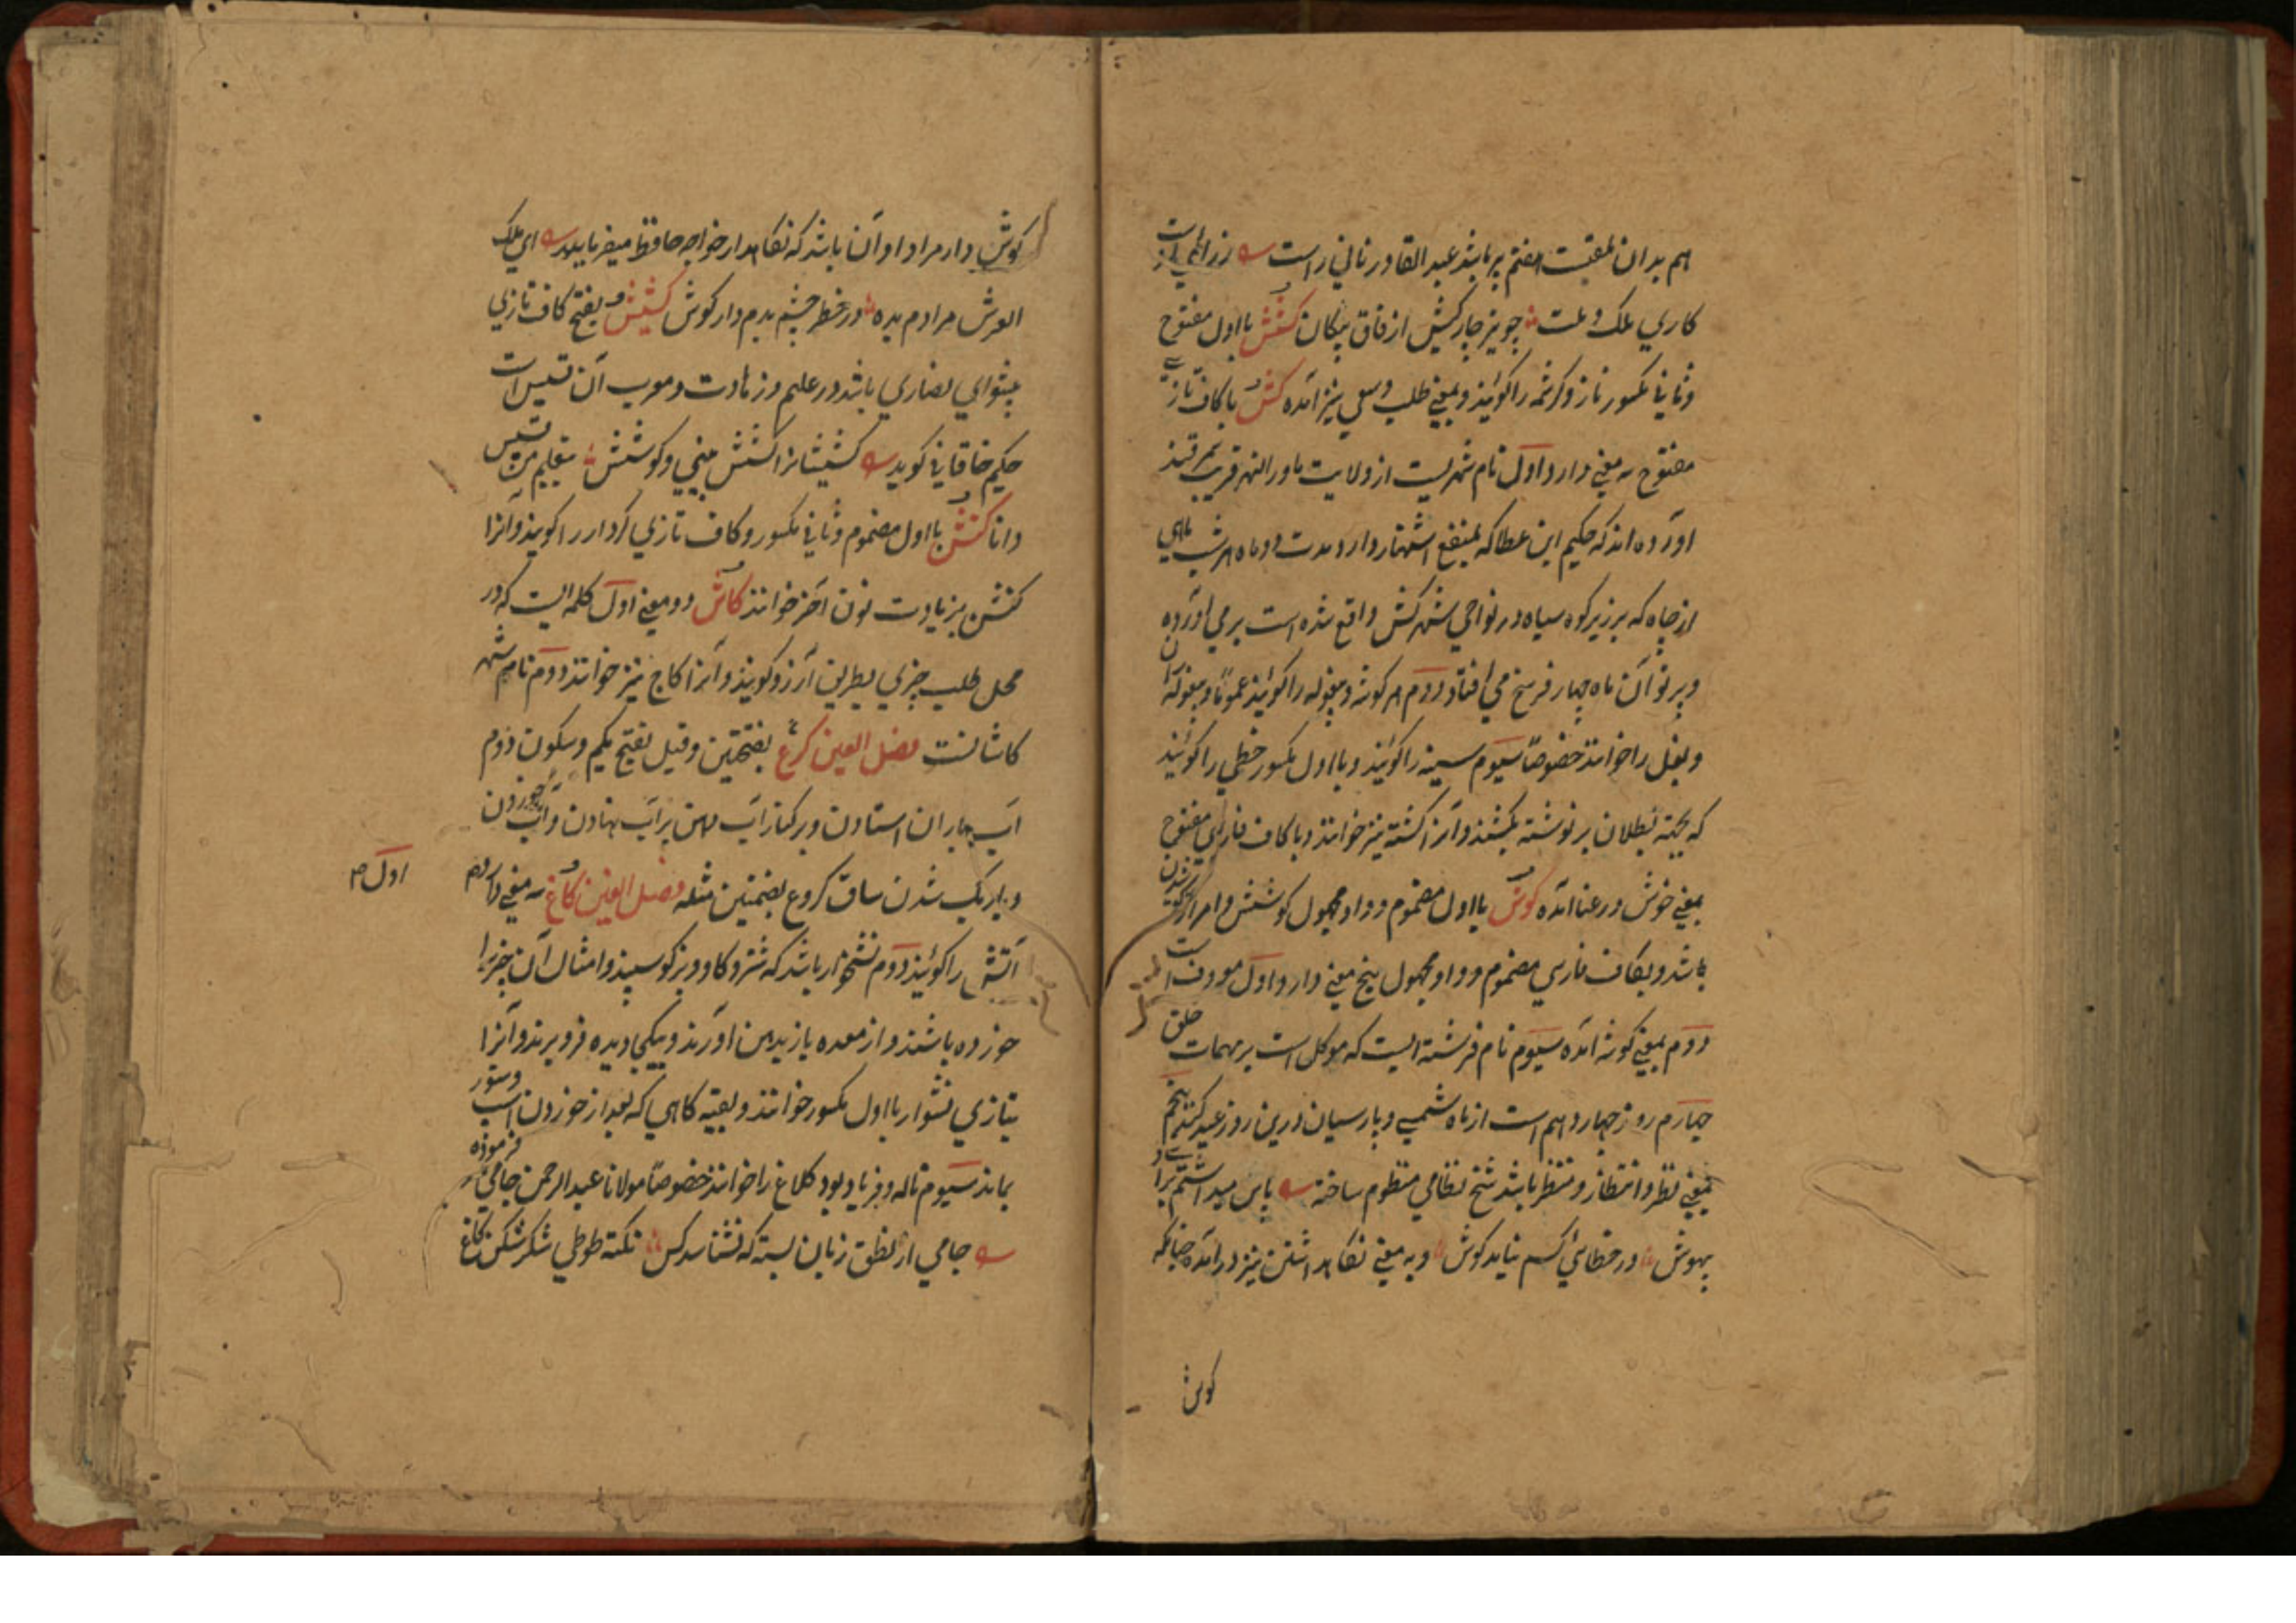 هم بدان ملقبست هفتم پر باشد عبد القادر نائی راست رز رائی است
کاری ملک و ملت چو نیز چار کیش از فاق پیکان کَشِش با اول مفتوح
و ثانی مکسور ناز و کرشمه را کویند و بمعنی طلب و سعی نیز آمده کش با کاف تازی
مفتوح سه معنی دارد اول نام شهریست از ولایت ماورالنهر قریب سمرقند
آورده اند که حکیم ابن عطا که بمقنع اشتهار دارد مدت دو ماه هر شب ماهی
از چاه که بر زیر کوه سیاه در نواحی شهر کش واقع شده است بر می آورده
و پرتو آن ماه چهار فرسخ می افتاد دوم هر کوشه و پیغوله را کویند عموما و پیغوله ران
و بغل را خوانند خصوصا سیوم سینه را کویند و با اول مکسور خطی را کویند
که بجهة بطلان بر نوشته بکشند و آنرا کشته نیز خوانند و با کاف فارسی مفتوح
بمعنی خوش و رعنا آمده کوش با اول مضموم و واو مجهول کوشش و امر از کوشیدن
باشد و بکاف فارسی مضموم و واو مجهول پنج معنی دارد اول معروف است
دوم بمعنی کوشه آمده سیوم نام فرشته ایست که موکل است بر مهمات خلق
چهارم روز چهاردهم است از ماه شمسی و پارسیان درین روز عید کنند پنجم
بمعنی نظر و انتظار و منتظر باشد شیخ نظامی منظوم ساخته پاس میداشتم برای و
بهوش در خطائی کسم نیاید کوش و به معنی نکاهداشتن نیز در آمده چنانکه
کوش
کوش دار مراد او آن باشد که نکاهدار خواجه حافظ میفرماید ای ملک
العرش مرادم بده و ز خطر چشم بدم دار کوش کشیش بفتح کاف تازی
پیشوای نصاری باشد در علم و زهادت و معرب آن قسیس است
حکیم خاقانی کوید کشیشانرا کشش بینی و کوشش بتعلیم من قسیس
دانا کنش با اول مضموم و ثانی مکسور و کاف تازی کردار را کویند و آنرا
کنشن بزیادت نون آخر خوانند کاش دو معنی اول کلمه ایست که در
محل طلب چیزی بطریق آرزو کویند و آنرا کاج نیز خوانند دوم نام شهر
کاشانست فصل العین کرع بفتحتین و قیل بفتح یکم و سکون دوم
آب باران استادن و بر کنار آب دهن بر آب نهادن و آب خوردن
و باریک شدن ساق کروع بضمتین مثله فصل الغین کاغ سه معنی دارد
اول
آتش را کویند دوم نشخوار باشد که شتر و کاو و بز و کوسپند و امثال آن چیزیرا
خورده باشند و از معده باز بدهن آورند و نیکجاویده فرو برند و آنرا
بتازی نشوار با اول مکسور خوانند و بقیه کاهی که بعد از خوردن اسب و ستور
بماند سیوم ناله و فریاد بود کلاغ را خوانند خصوصا مولانا عبدالرحمن جامی فرموده
جامی از نطق زبان بسته که نشناسد کس نکته طوطی شکر شکن کاغ